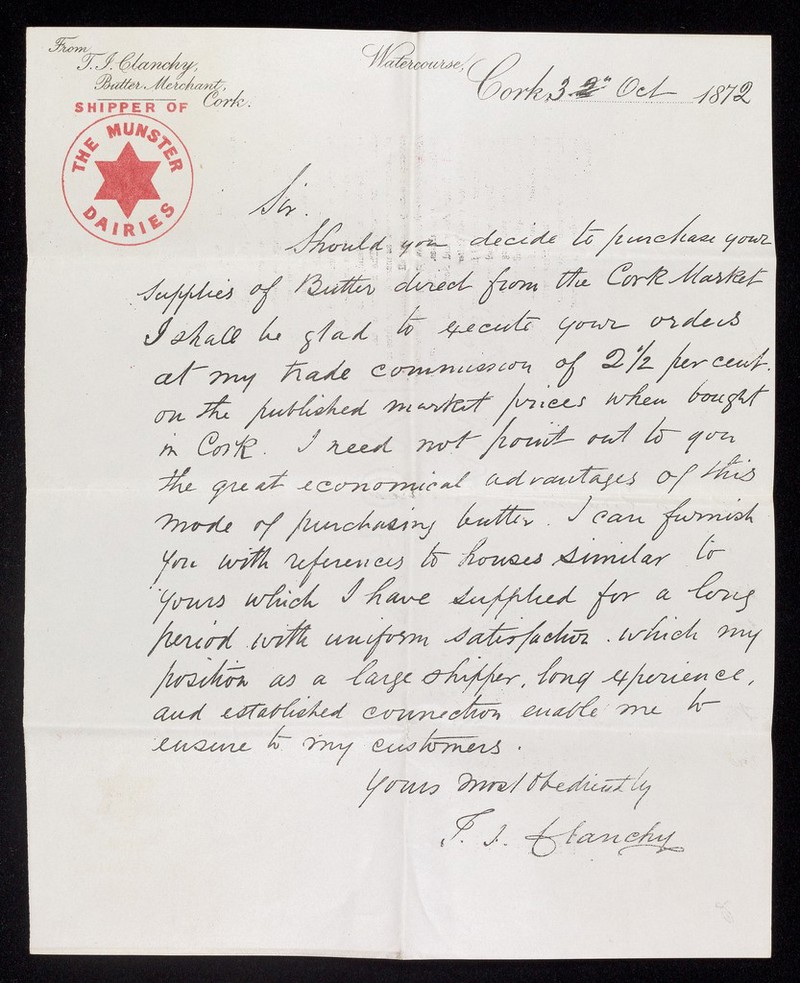 From
T. J. Clanchy,
Butter Merchant,
Cork.
SHIPPER OF
THE MUNSTER
DAIRIES
Watercourse,
Cork, 3 Oct 1872
Sir.
Should you decide to purchase your
supplies of Butter direct from the Cork Market
I shall be glad to execute your orders
at my trade commission of 2 1/2 per cent.
on the published market prices when bought
in Cork. I need not point out to you
the great economical advantages of this
mode of purchasing butter. I can furnish
you with references to houses similar to
yours which I have supplied for a long
period with uniform satisfaction. which my
position as a large shipper, long experience,
and established connection enable me to
ensure to my customers.
Yours most Obediently
T. J. Clanchy